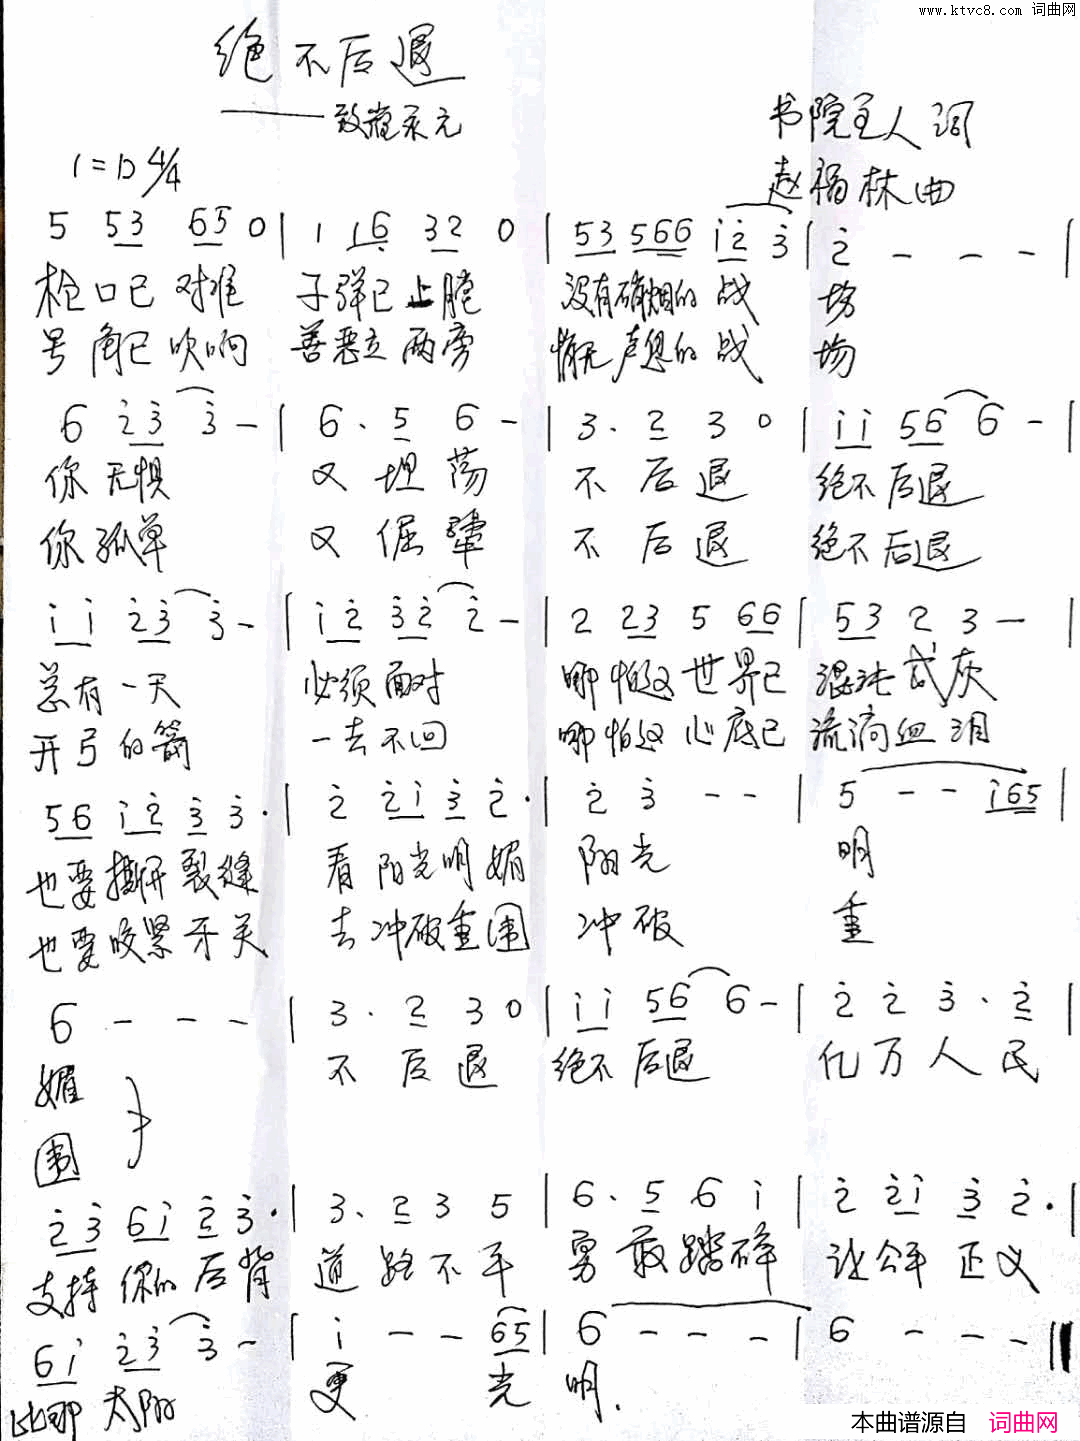 www.ktvc8.com 词曲网
绝不后退
——致崔永元
书院主人词
1=D 4/4
赵福林曲
5 53 65 0 | 1 16 32 0 | 53 566 i2 3 | 2 - - - |
枪口已对准 子弹已上膛 没有硝烟的战场
号角已吹响 善恶立两旁 悄无声息的战场
6 23 3 - | 6. 5 6 - | 3. 2 3 0 | ii 56 6 - |
你无惧 又坦荡 不后退 绝不后退
你孤单 又倔犟 不后退 绝不后退
ii 23 3 - | i2 32 2 - | 2 23 5 66 | 53 2 3 - |
总有一天 必须面对 哪怕这世界已混沌成灰
开弓的箭 一去不回 哪怕这心底已流淌血泪
56 i2 3 3. | 2 2i 3 2. | 2 3 - - | 5 - - i65 |
也要撕开裂缝 看阳光明媚 阳光 明
也要咬紧牙关 去冲破重围 冲破 重
6 - - - | 3. 2 3 0 | ii 56 6 - | 2 2 3. 2 |
媚 不后退 绝不后退 亿万人民
围
23 6i 2 3. | 3. 2 3 5 | 6. 5 6 i | 2 2i 3 2. |
支持你的后背 道路不平 勇敢踏碎 让公平正义
6i 23 3 - | i - - 65 | 6 - - - | 6 - - - ‖
比那太阳 更光明.
本曲谱源自 词曲网